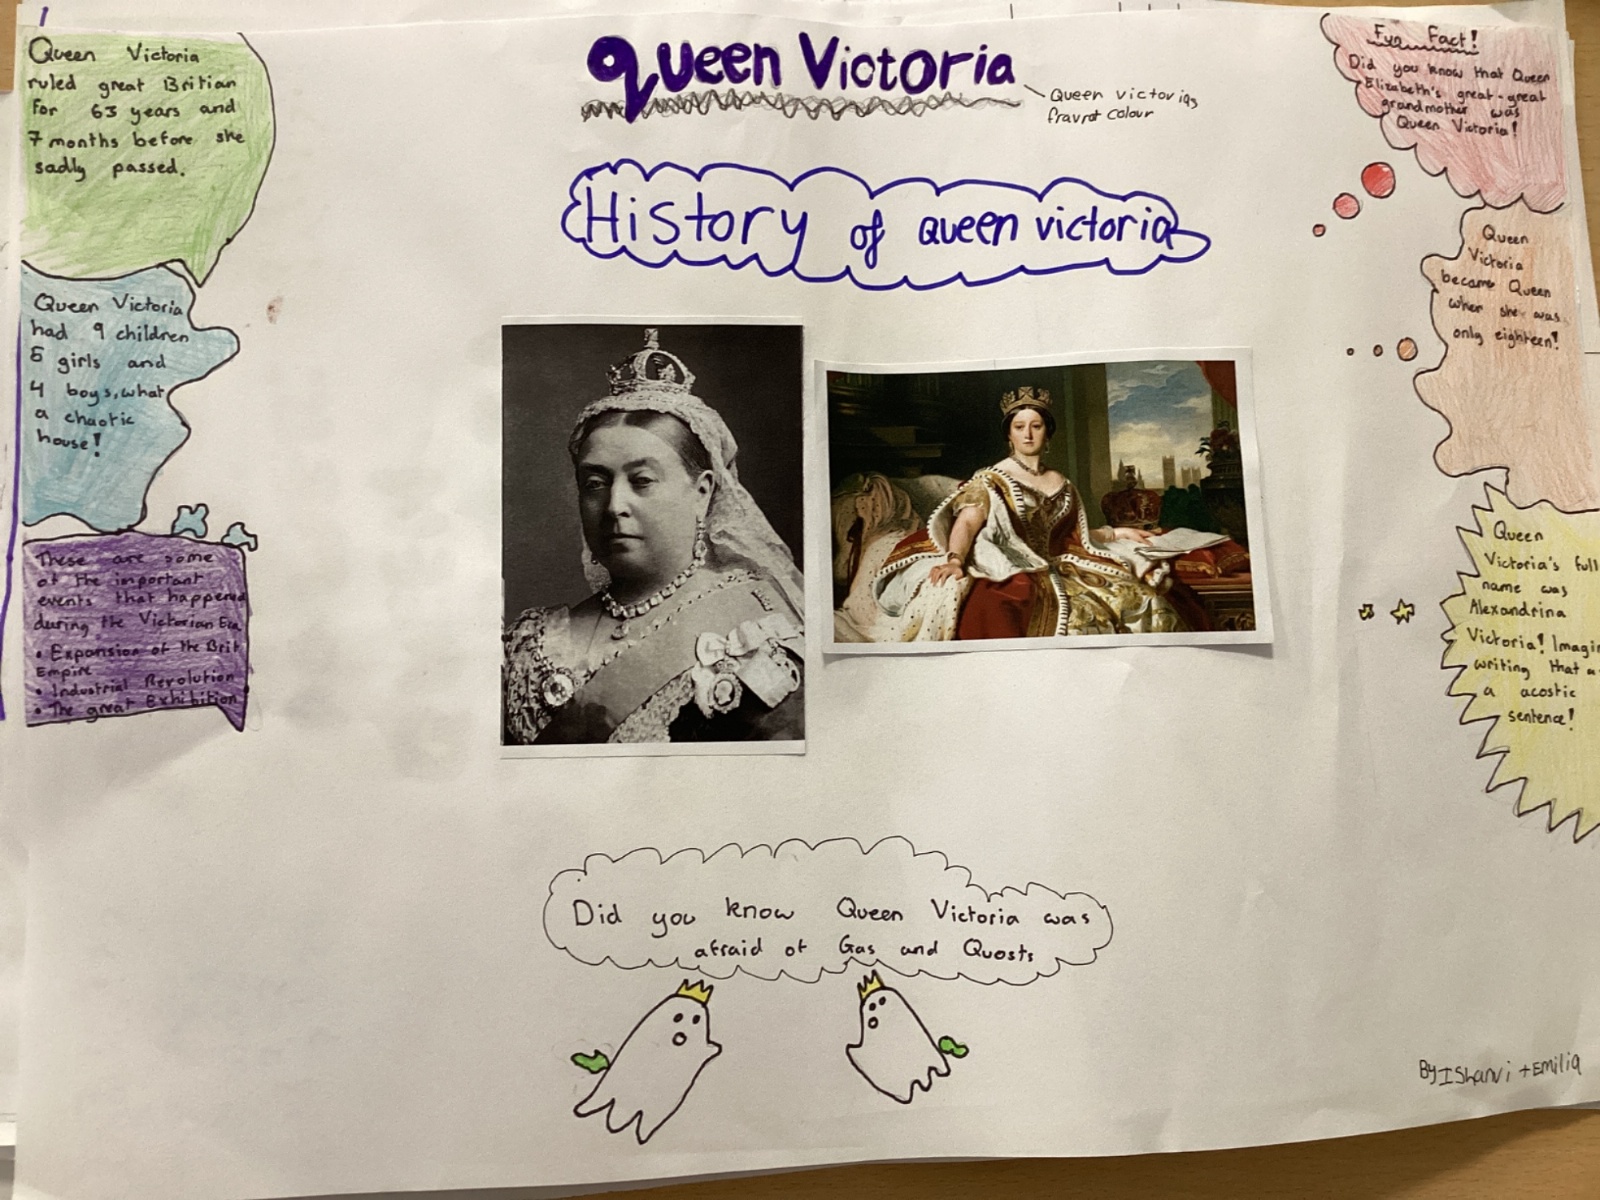 Queen Victoria
Queen victorias
fravrot colour
History of queen victoria
Queen Victoria
ruled great Britian
for 63 years and
7 months before she
sadly passed.
Queen Victoria
had 9 children
5 girls and
4 boys, what
a chaotic
house!
These are some
of the important
events that happened
during the Victorian Era
• Expansion of the Brit
Empire
• Industrial Revolution
• The great Exhibition
Fun Fact!
Did you know that Queen
Elizabeth's great-great
grandmother was
Queen Victoria!
Queen
Victoria
became Queen
when she was
only eighteen!
Queen
Victoria's full
name was
Alexandrina
Victoria! Imagin
writing that a
a acostic
sentence!
Did you know Queen Victoria was
afraid of Gas and Quosts
By Ishanvi + Emilia